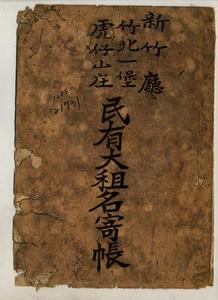 新竹廳
竹北一堡
虎仔山庄
民有大租名寄帳